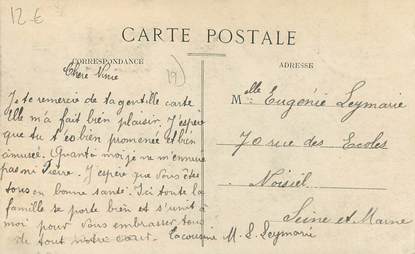 12 €
CARTE POSTALE
CORRESPONDANCE
ADRESSE
19)
Chère
Je te remercie de ta gentille carte
elle m'a fait bien plaisir. J'espère
que tu t'es bien promenée et bien
amusée. Quant à moi je ne m'ennuie
pas ni Pierre. J'espère que vous êtes
tous en bonne santé. Ici toute la
famille se porte bien et s'unit à
moi pour vous embrasser tous
de tout notre cœur. Ta cousine M. L. Leymarie
Melle Eugénie Leymarie
70 rue des Ecoles
Noisiel
Seine et Marne